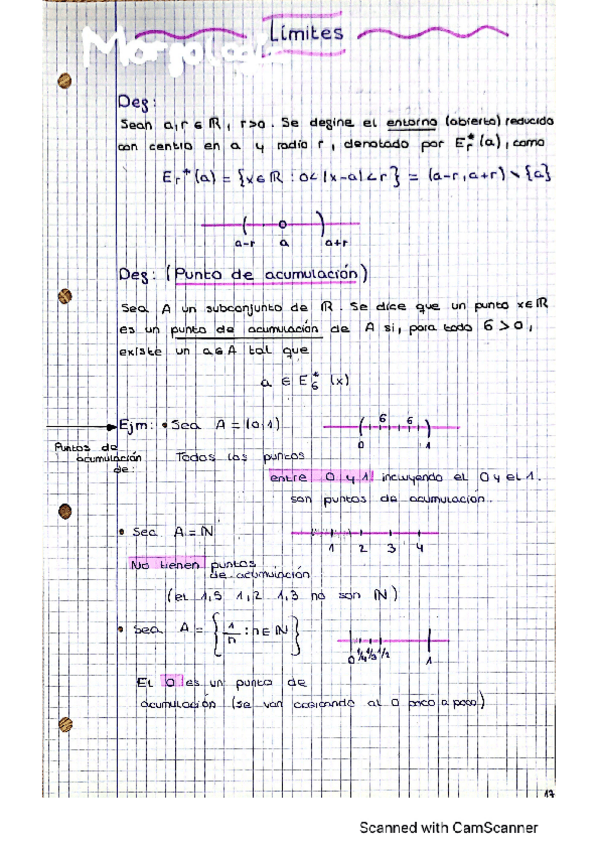 Límites
Def:
Sean a,r ∈ ℝ, r>0. Se define el entorno (abierto) reducido
con centro en a y radio r, denotado por Er*(a), como
Er*(a) = {x∈ℝ : 0<|x-a|<r} = (a-r,a+r)∖{a}
a-r a a+r
Def: (Punto de acumulación)
Sea A un subconjunto de ℝ. Se dice que un punto x∈ℝ
es un punto de acumulación de A si, para todo δ>0,
existe un a∈A tal que
a ∈ Eδ*(x)
Ejm: • Sea A = (0,1)
δ δ
0 1
Puntos de
acumulación
de:
Todos los puntos
entre 0 y 1 incluyendo el 0 y el 1.
son puntos de acumulación.
• Sea A = ℕ
1 2 3 4
No tienen puntos
de acumulación
(el 1,5 1,2 1,3 no son ℕ)
• Sea A = {1/n : n∈ℕ}
0 1/4 1/3 1/2 1
El 0 es un punto de
acumulación (se van acercando al 0 poco a poco)
17
Scanned with CamScanner